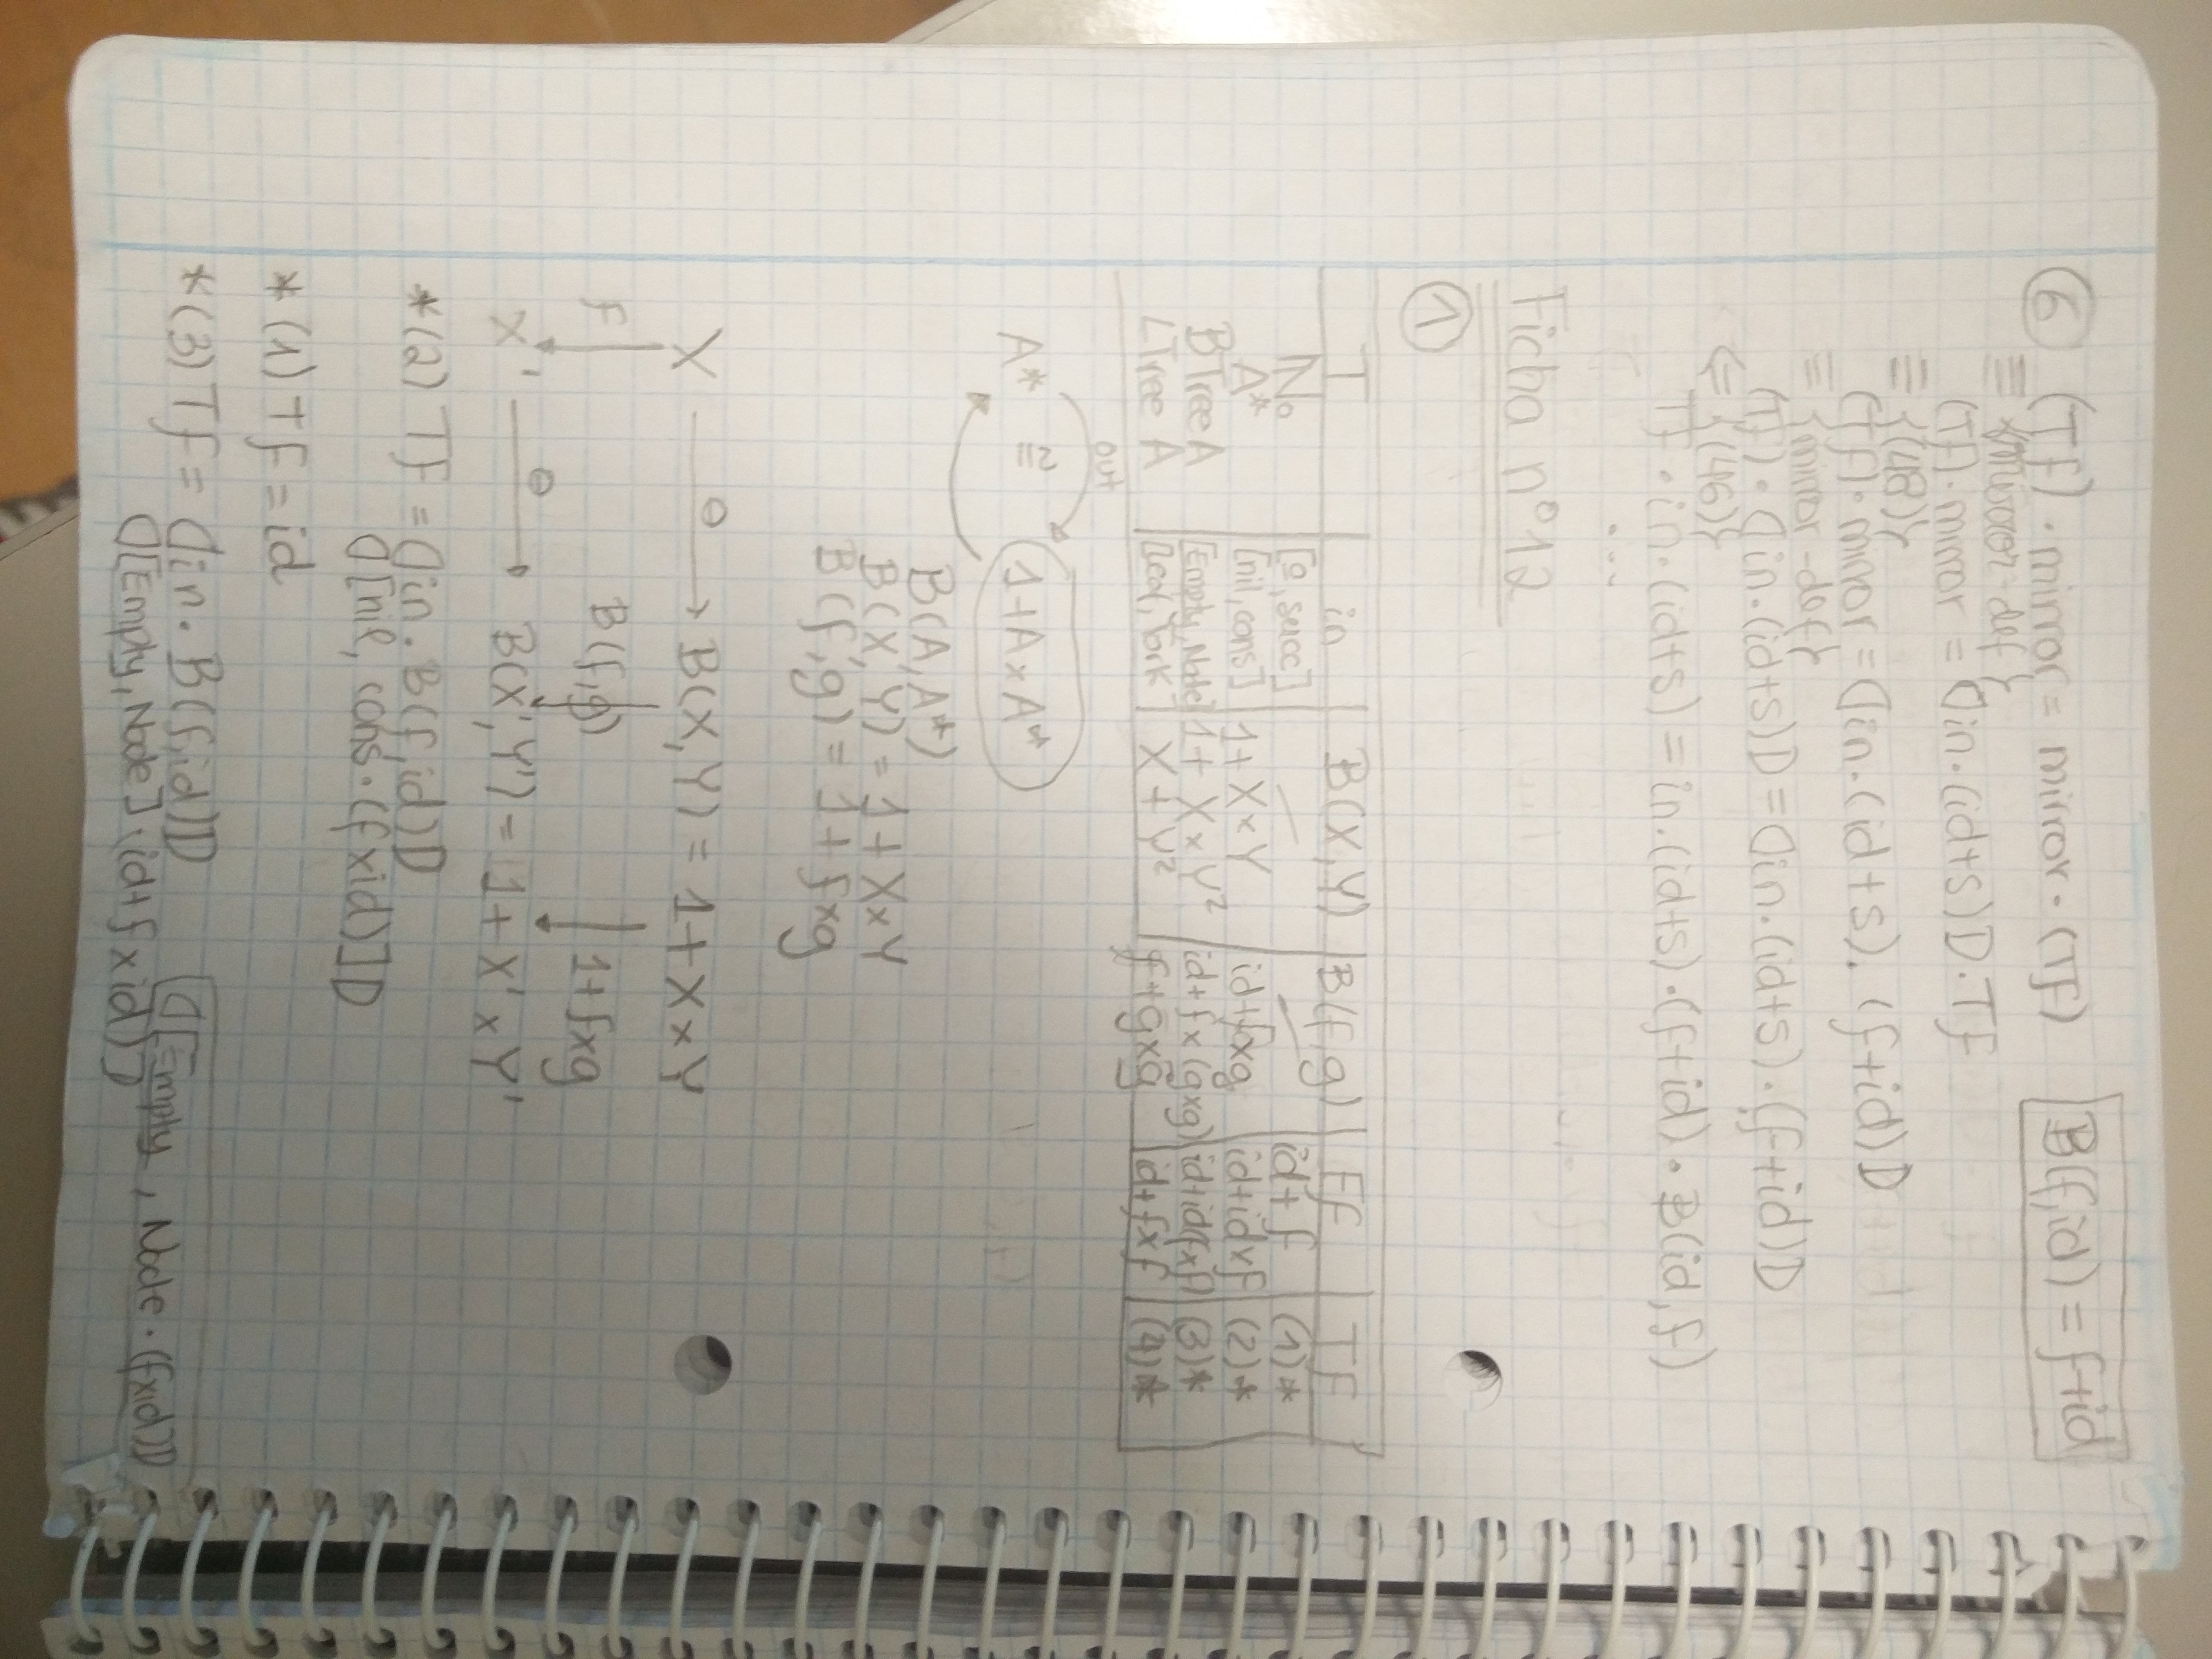 6 (Tf) · mirror = mirror · (Tf) B(f,id) = f+id
≡ {mirror-def}
(Tf) · mirror = ⦇in·(id+s)⦈·Tf
≡ {(48)}
(Tf) · mirror = ⦇in·(id+s)·(f+id)⦈
≡ {mirror-def}
(Tf) · ⦇in·(id+s)⦈ = ⦇in·(id+s)·(f+id)⦈
⇐ {(46)}
Tf · in·(id+s) = in·(id+s)·(f+id) · B(id,f)
...
Ficha nº12
1
T | in | B(X,Y) | B(f,g) | Ff | TF
ℕ₀ | [0,succ] | — | — | id+f | (1)*
A* | [nil,cons] | 1+X×Y | id+f×g | id+id×f | (2)*
BTree A | [Empty,Node] | 1+X×Y² | id+f×(g×g) | id+id(f×f) | (3)*
LTree A | [Leaf,Fork] | X+Y² | f+g×g | id+f×f | (4)*
out
A* ≅ 1+A×A*
B(A,A*)
B(X,Y) = 1+X×Y
B(f,g) = 1+f×g
X Θ B(X,Y) = 1+X×Y
f B(f,g) 1+f×g
X' Θ B(X',Y') = 1+X'×Y'
*(2) Tf = ⦇in·B(f,id)⦈
⦇[nil, cons·(f×id)]⦈
*(1) Tf = id
*(3) Tf = ⦇in·B(f,id)⦈
⦇[Empty,Node]·(id+f×id)⦈ ⦇[Empty, Node·(f×id)⦈